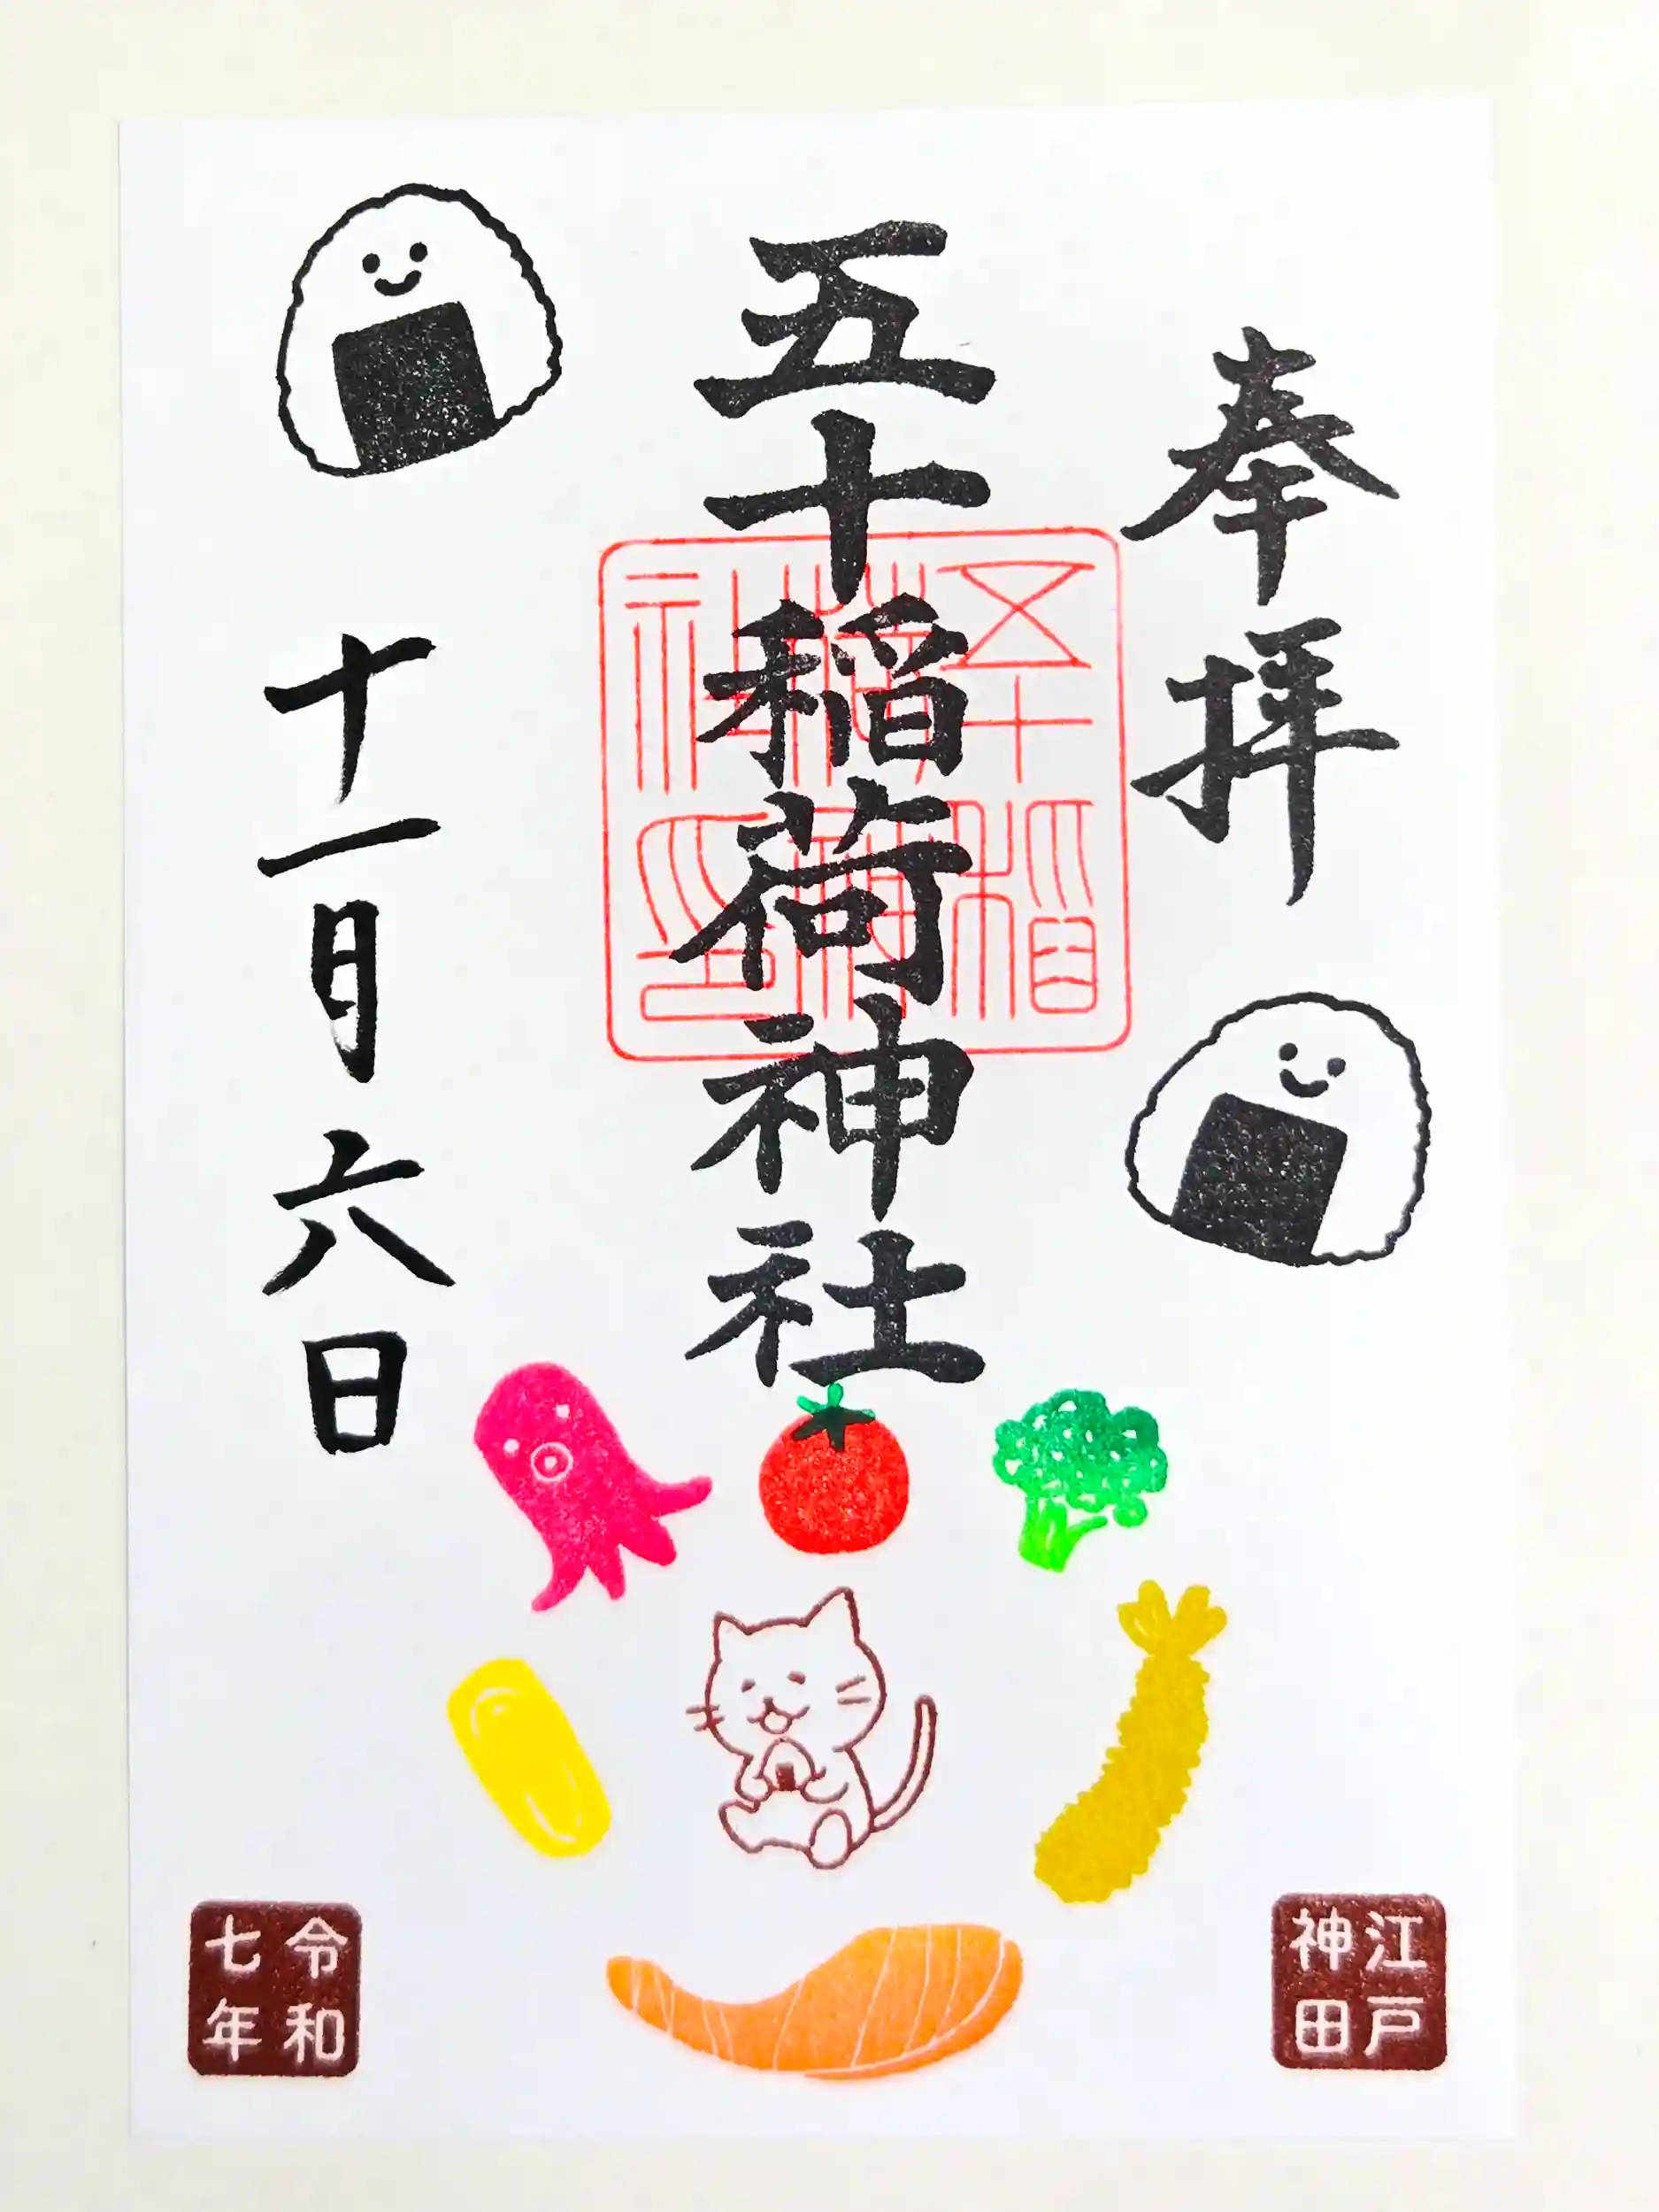 奉拝
五十稲荷神社
五十稲荷神社印
十一月六日
江戸神田
令和七年